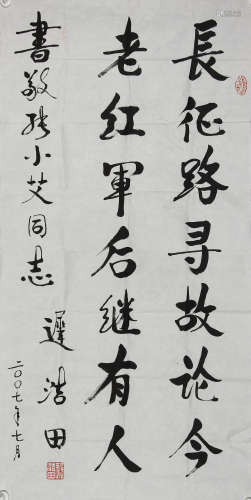 長征路寻故论今
老红軍后继有人
書敬张小艾同志
遲浩田
二〇〇七年七月